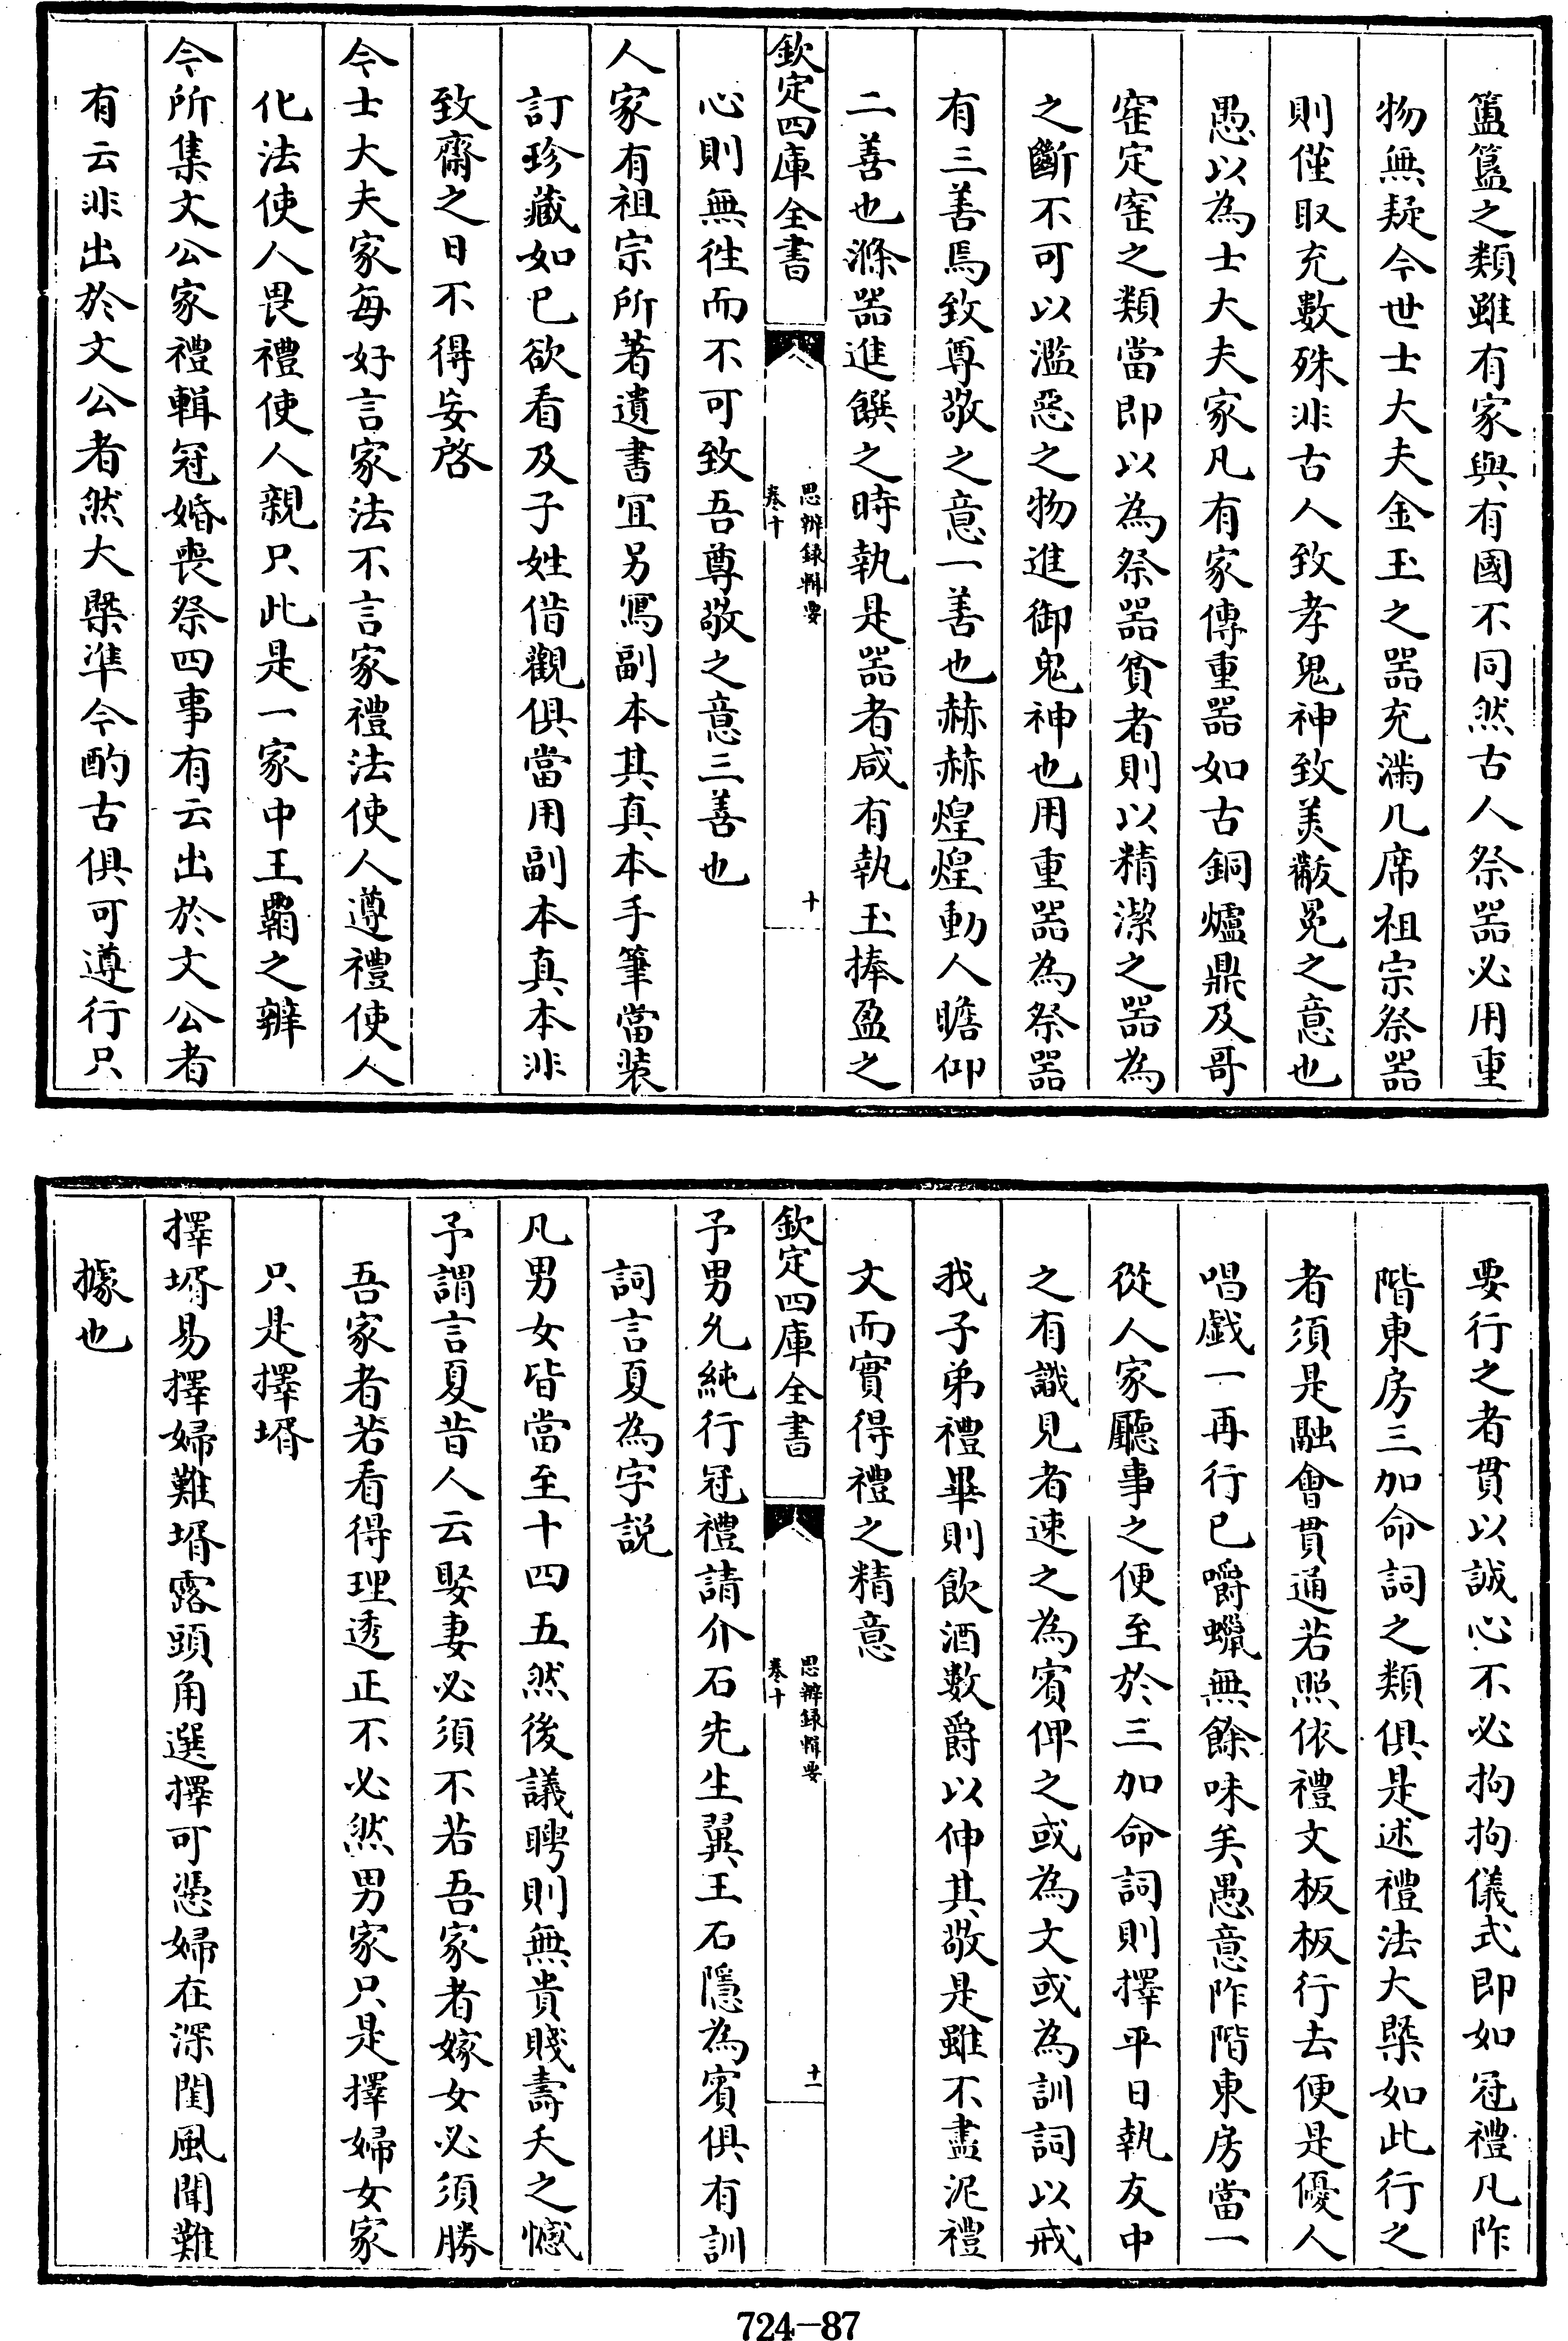 簠簋之類雖有家與有國不同然古人祭器必用重
物無疑今世士大夫金玉之器充滿几席祖宗祭器
則僅取充數殊非古人致孝鬼神致美黻冕之意也
愚以為士大夫家凡有家傳重器如古銅爐鼎及哥
窑定窑之類當即以為祭器貧者則以精潔之器為
之斷不可以濫惡之物進御鬼神也用重器為祭器
有三善焉致尊敬之意一善也赫赫煌煌動人瞻仰
二善也滌器進饌之時執是器者咸有執玉捧盈之
欽定四庫全書
思辨録輯要
卷十
十
心則無徃而不可致吾尊敬之意三善也
人家有祖宗所著遺書宜另寫副本其真本手筆當装
訂珍藏如已欲看及子姓借觀俱當用副本真本非
致齋之日不得妄啓
今士大夫家每好言家法不言家禮法使人遵禮使人
化法使人畏禮使人親只此是一家中王霸之辨
今所集文公家禮輯冠婚喪祭四事有云出於文公者
有云非出於文公者然大槩準今酌古俱可遵行只
要行之者貫以誠心不必拘拘儀式即如冠禮凡阼
階東房三加命詞之類俱是述禮法大槩如此行之
者須是融會貫通若照依禮文板板行去便是優人
唱戯一再行已嚼蠟無餘味矣愚意阼階東房當一
從人家廳事之便至於三加命詞則擇平日執友中
之有識見者速之為賓俾之或為文或為訓詞以戒
我子弟禮畢則飲酒數爵以伸其敬是雖不盡泥禮
文而實得禮之精意
欽定四庫全書
思辨録輯要
卷十
十一
予男允純行冠禮請介石先生翼王石隱為賓俱有訓
詞言夏為字説
凡男女皆當至十四五然後議聘則無貴賤壽夭之憾
予謂言夏昔人云娶妻必須不若吾家者嫁女必須勝
吾家者若看得理透正不必然男家只是擇婦女家
只是擇壻
擇壻易擇婦難壻露頭角選擇可憑婦在深閨風聞難
據也
724-87